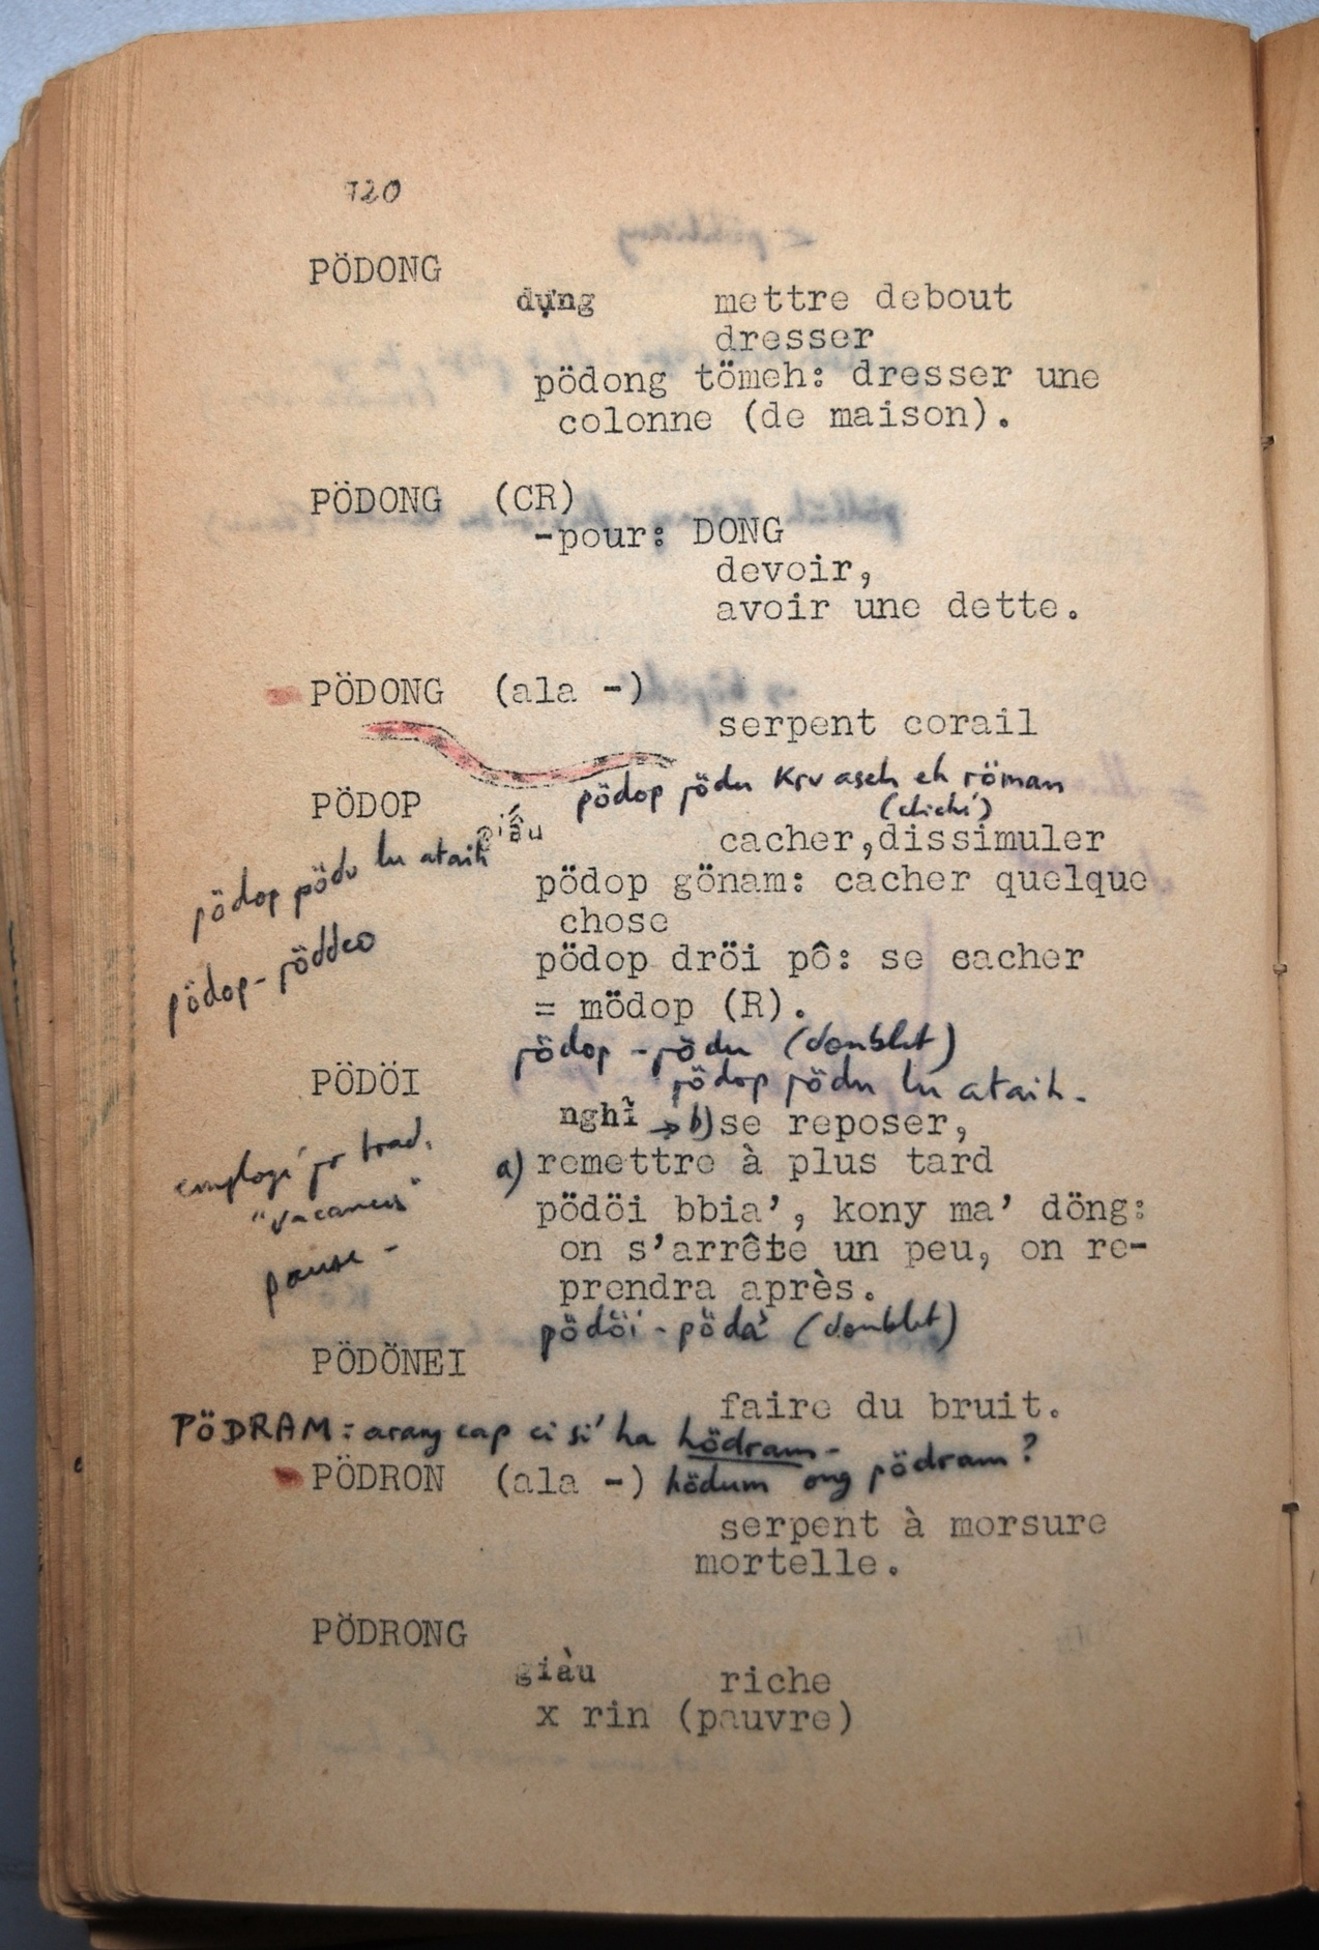 720
PÖDONG
dựng mettre debout
dresser
pödong tömeh: dresser une
colonne (de maison).
PÖDONG (CR)
-pour: DONG
devoir,
avoir une dette.
PÖDONG (ala -)
serpent corail
pödop pödu Krv aseh eh röman
(cliché)
PÖDOP
giấu
cacher,dissimuler
pödop pödu lu ataih
pödop gönam: cacher quelque
chose
pödop-pöddeo
pödop dröi pô: se cacher
= mödop (R).
pödop - pödu (doublet)
pödop pödu lu ataih.
PÖDÖI
nghỉ → b) se reposer,
employé pr trad.
"vacances"
pause -
a) remettre à plus tard
pödöi bbia', kony ma' döng:
on s'arrête un peu, on re-
prendra après.
pödöi - pödä' (doublet)
PÖDÖNEI
faire du bruit.
PÖDRAM : arang cap ci si' ha hödram -
hödum ong pödram ?
PÖDRON (ala -)
serpent à morsure
mortelle.
PÖDRONG
giàu riche
x rin (pauvre)